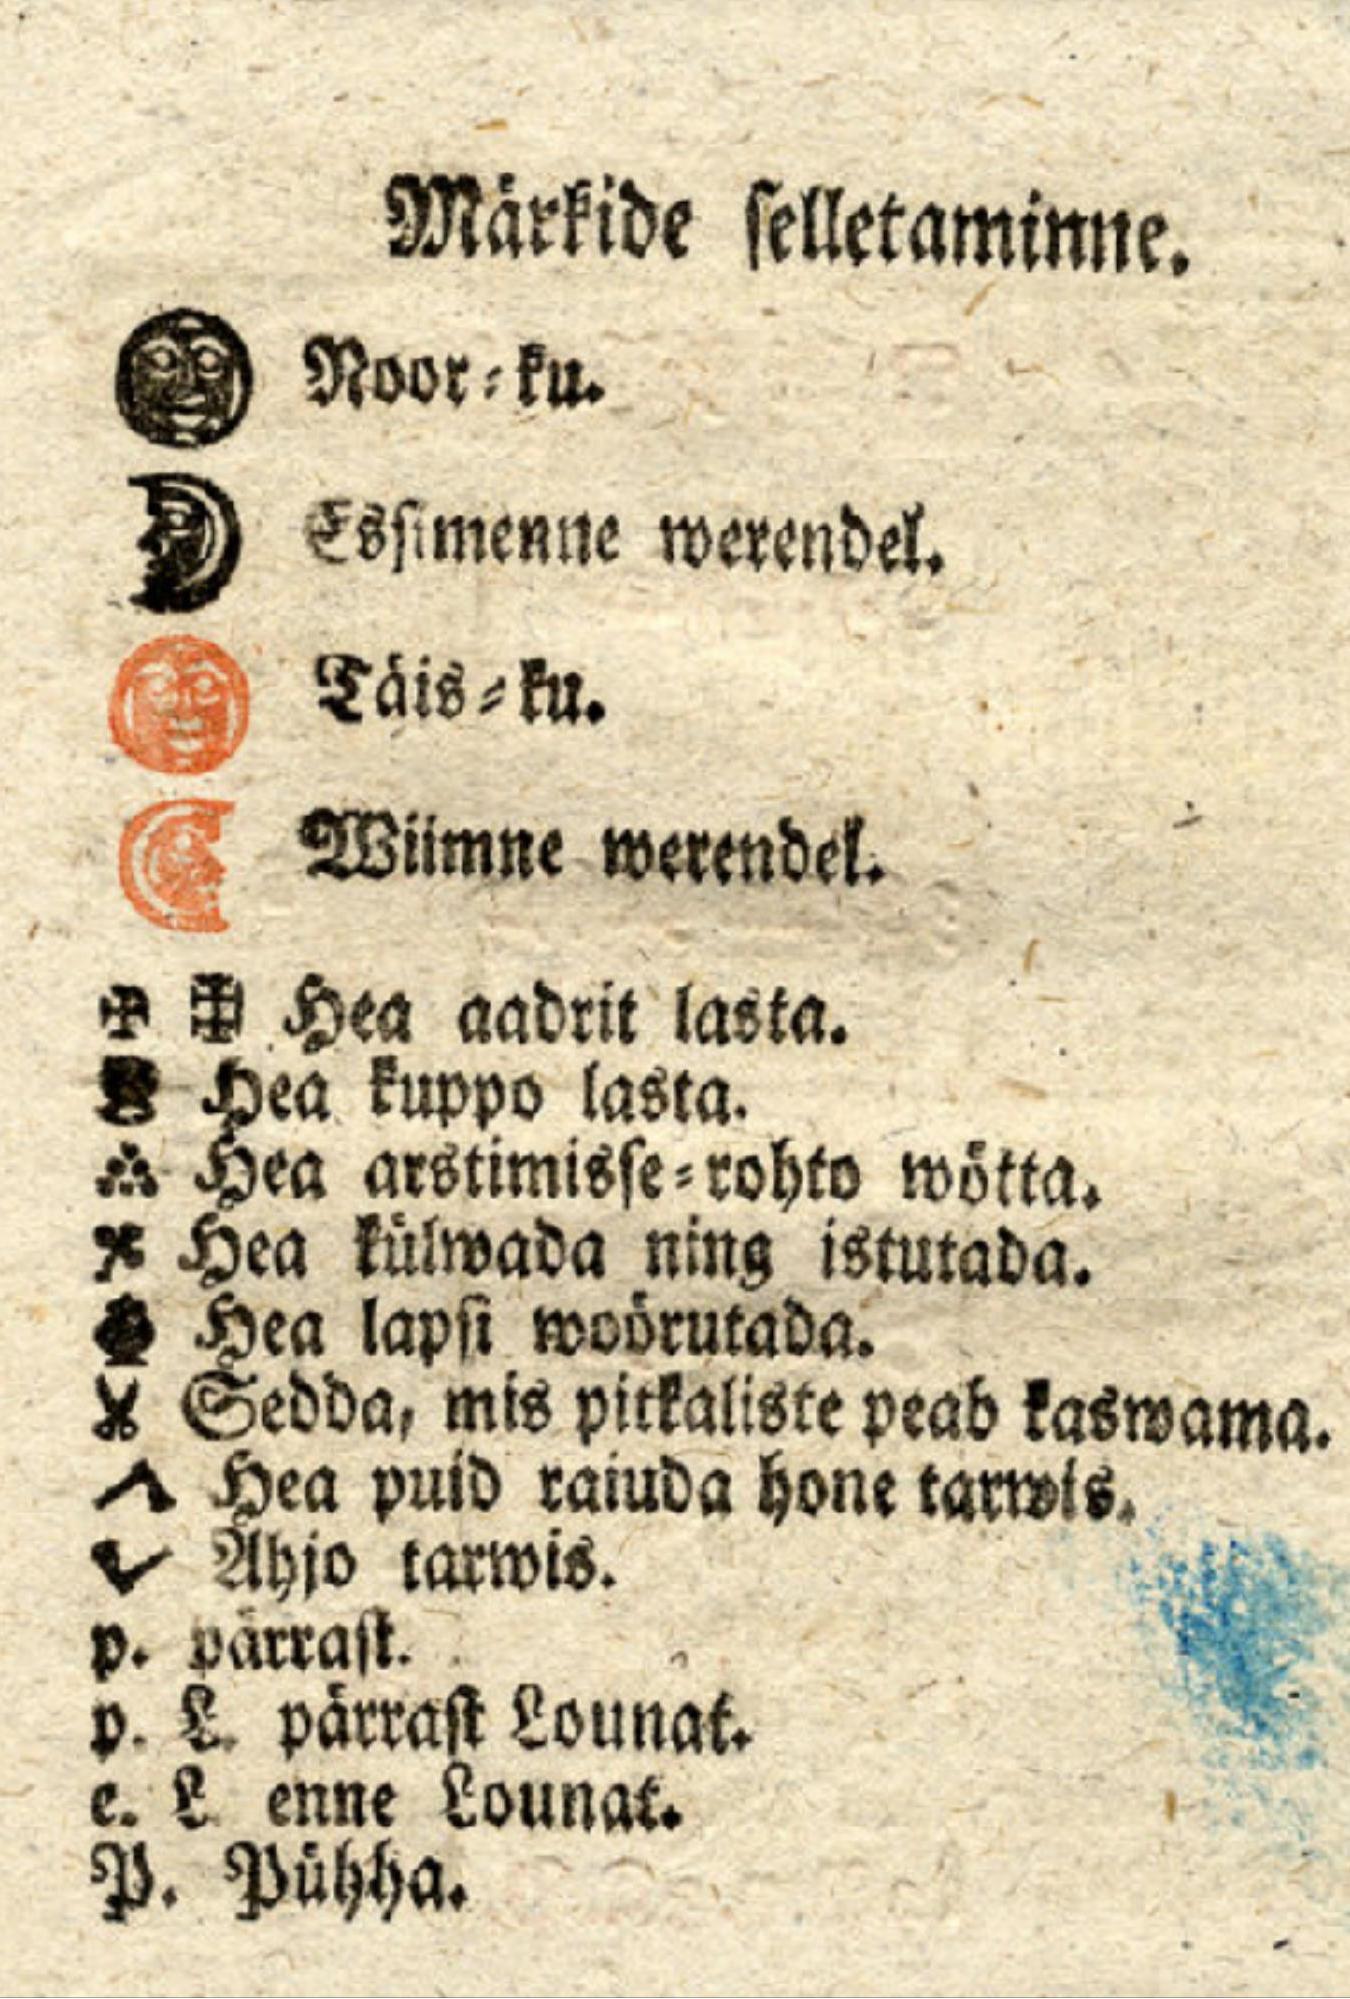 Märkide selletaminne.
Noor-ku.
Essimenne werendel.
Täis-ku.
Wiimne werendel.
Hea aadrit lasta.
Hea kuppo lasta.
Hea arstimisse-rohto wötta.
Hea külwada ning istutada.
Hea lapsi woörutada.
Sedda, mis pitkaliste peab kaswama.
Hea puid raiuda hone tarwis.
Ahjo tarwis.
p. pärrast.
p. L. pärrast Lounat.
e. L enne Lounat.
P. Pühha.